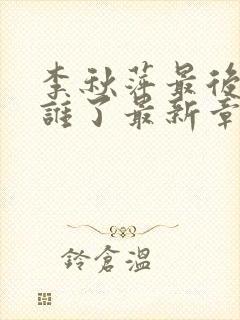 李秋萍最後
誰了最新章
鈴倉溫